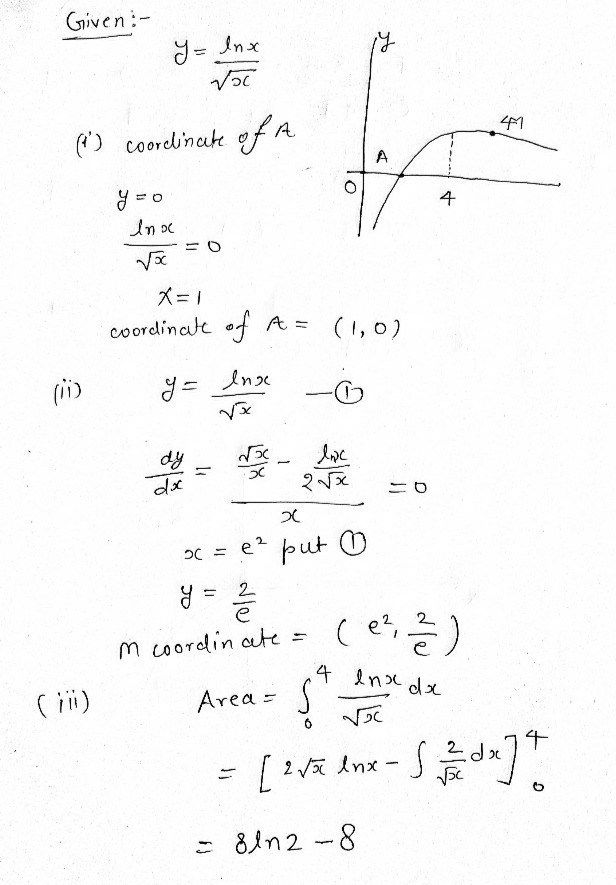 Given :-
y = lnx / √x
(i) coordinate of A
y = 0
lnx / √x = 0
x = 1
coordinate of A = (1, 0)
y
A
O
4
M
(ii) y = lnx / √x — ①
dy/dx = (√x/x - lnx/2√x) / x = 0
x = e² put ①
y = 2/e
m coordinate = (e², 2/e)
(iii) Area = ∫₀⁴ lnx/√x dx
= [2√x lnx - ∫ 2/√x dx]₀⁴
= 8ln2 - 8